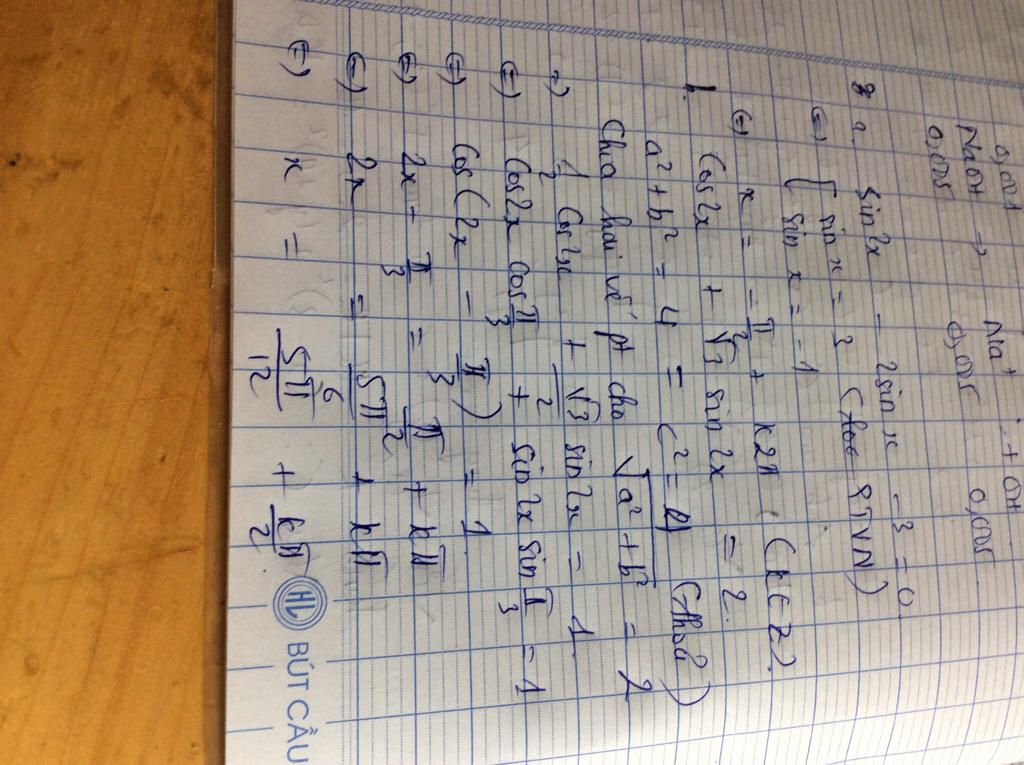 0,001
NaOH → Na+ + OH
0,005 0,005 0,005
a. sin²x - 2sinx - 3 = 0
(=) [ sin x = 3 PTVN)
sin x = -1
(=) x = -π/2 + k2π (k∈Z).
b. Cos2x + √3 sin2x = 2.
a² + b² = 4 = c² = 4 (thoả)
Chia hai vế pt cho √a² + b² = 2
=) 1/2 Cos2x + √3/2 sin2x = 1
(=) Cos2x cos π/3 + sin2x sin π/3 = 1
(=) Cos(2x - π/3) = 1
(=) 2x - π/3 = π/2 + kπ
(=) 2x = 5π/6 + kπ
(=) x = 5π/12 + kπ/2
HL BÚT CẦU